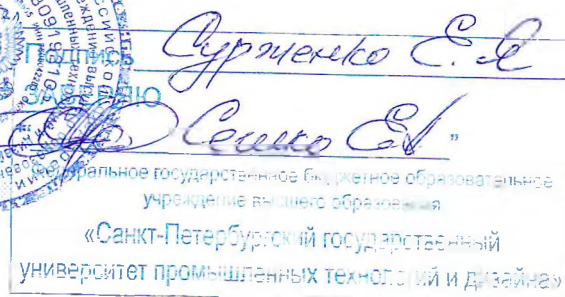 Подпись Сурженко Е. Я
ЗАВЕРЯЮ
Сенко Е.А.
Федеральное государственное бюджетное образовательное
учреждение высшего образования
«Санкт-Петербургский государственный
университет промышленных технологий и дизайна»